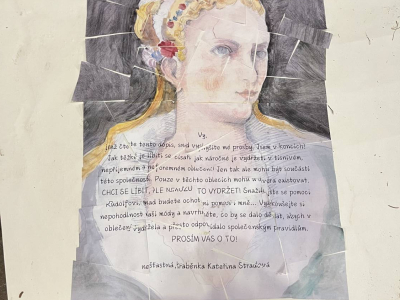 Vy,
jenž čtete tento dopis, snad vyslyšíte mé prosby. Jsem v koncích!
Jak těžké je líbiti se císaři, jak náročné je vydržeti v tísnivém,
nepříjemném a neforemném oblečení! Jen tak ale mohu být součástí
této společnosti. Pouze v těchto oblecích mohu u dvora existovat.
CHCI SE LÍBIT, ALE NEMOHU TO VYDRŽET! Snažila jste se pomoci
Rudolfovi, snad budete ochotni pomoci i mně...
nepohodlnost naší módy a navrhněte, co by se dalo dělat, abych v
oblečení vydržela a přesto odpovídalo společenským pravidlům.
PROSÍM VÁS O TO!
nešťastná hraběnka Kateřina Stradová